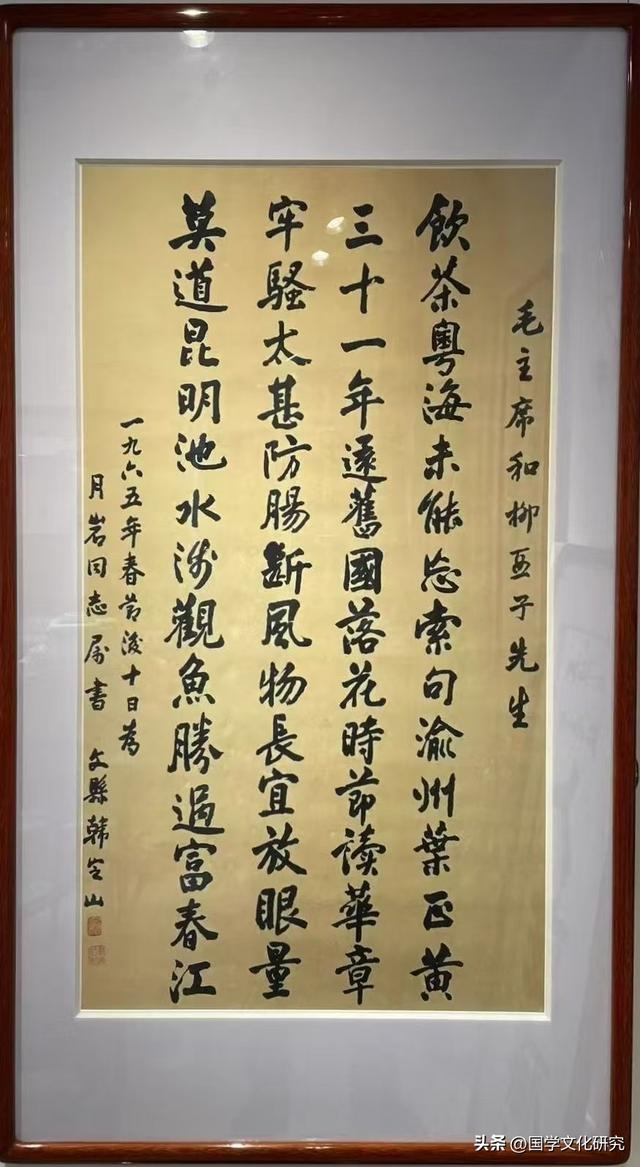 毛主席和柳亞子先生
飲茶粵海未能忘索句渝州葉正黃
三十一年還舊國落花時節讀華章
牢騷太甚防腸斷風物長宜放眼量
莫道昆明池水淺觀魚勝過富春江
一九六五年春節後十日為
月岩同志屬書 文縣韓定山
头条 @国学文化研究